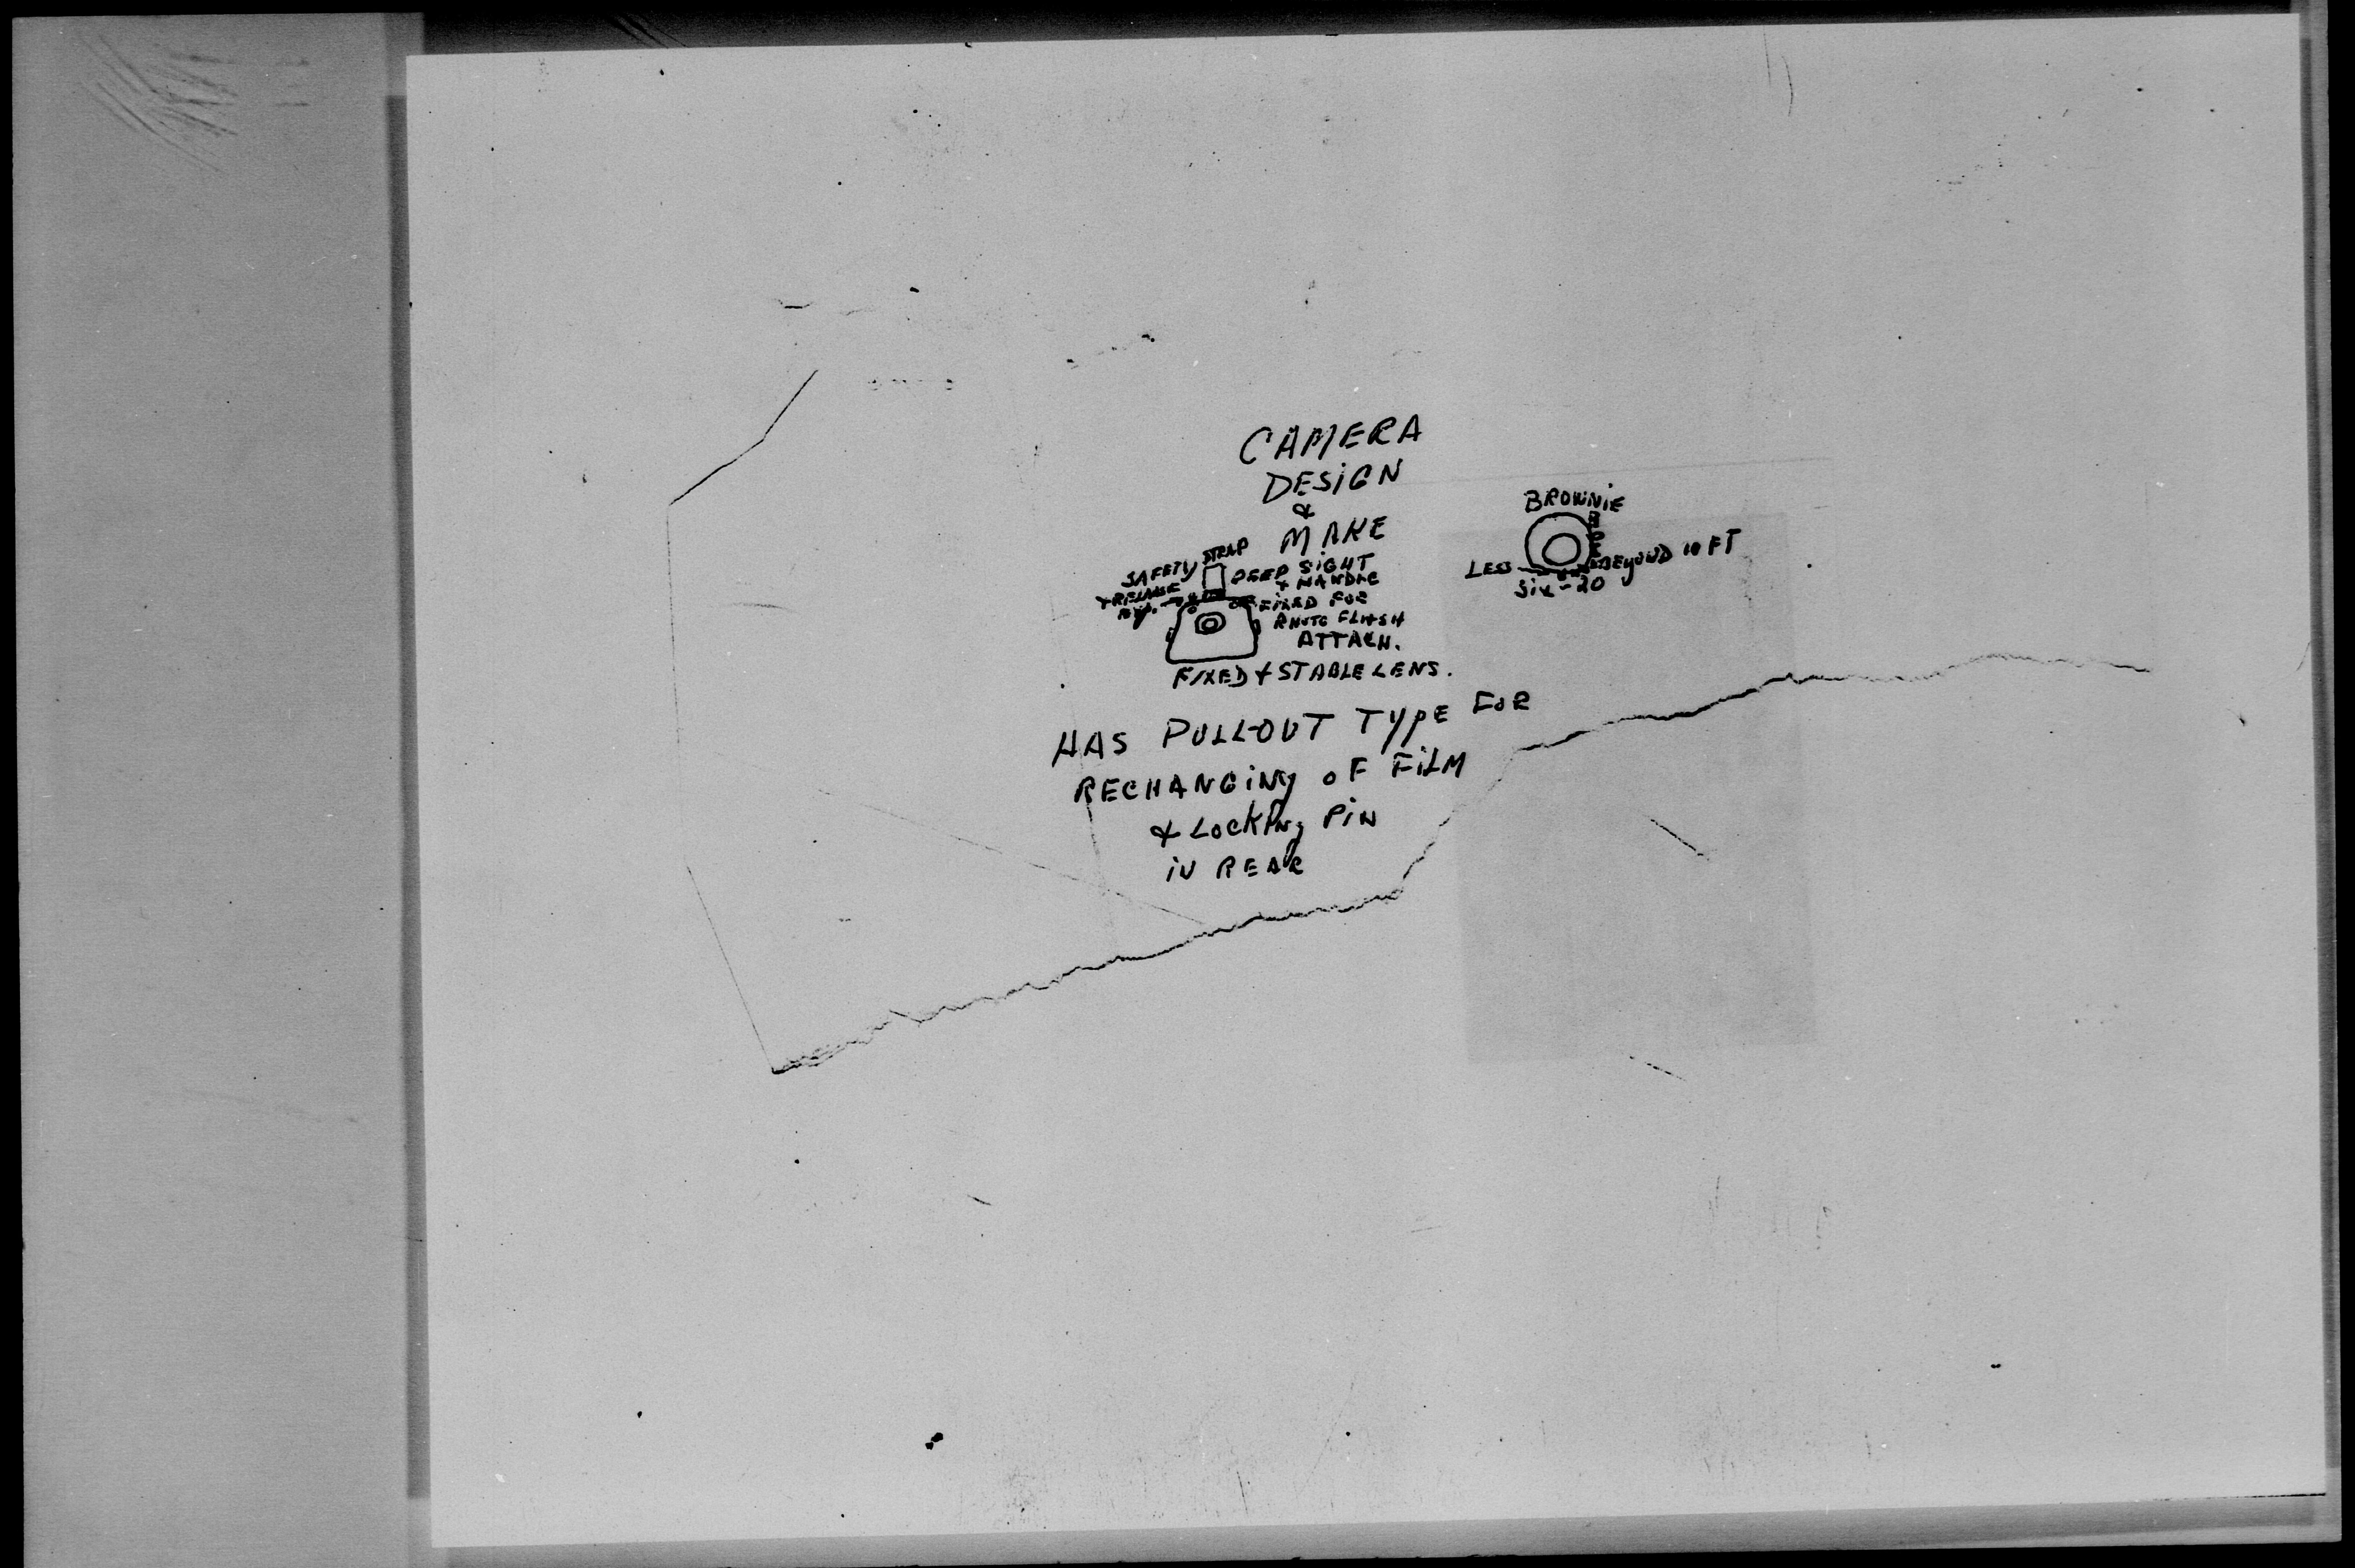 CAMERA
DESiGN
&
MAKE
SAFETY STRAP
+ RELEASE
PEEP SiGHT
+ HANDLE
FIXED FOR
PHOTO FLASH
ATTACH.
FIXED + STABLE LENS.
BROWNiE
LESS
BEYOND 10 FT
Six-20
HAS PULL-OUT TYPE FOR
RECHANGiNg oF FiLM
& LocKiNg PiN
iN REAR